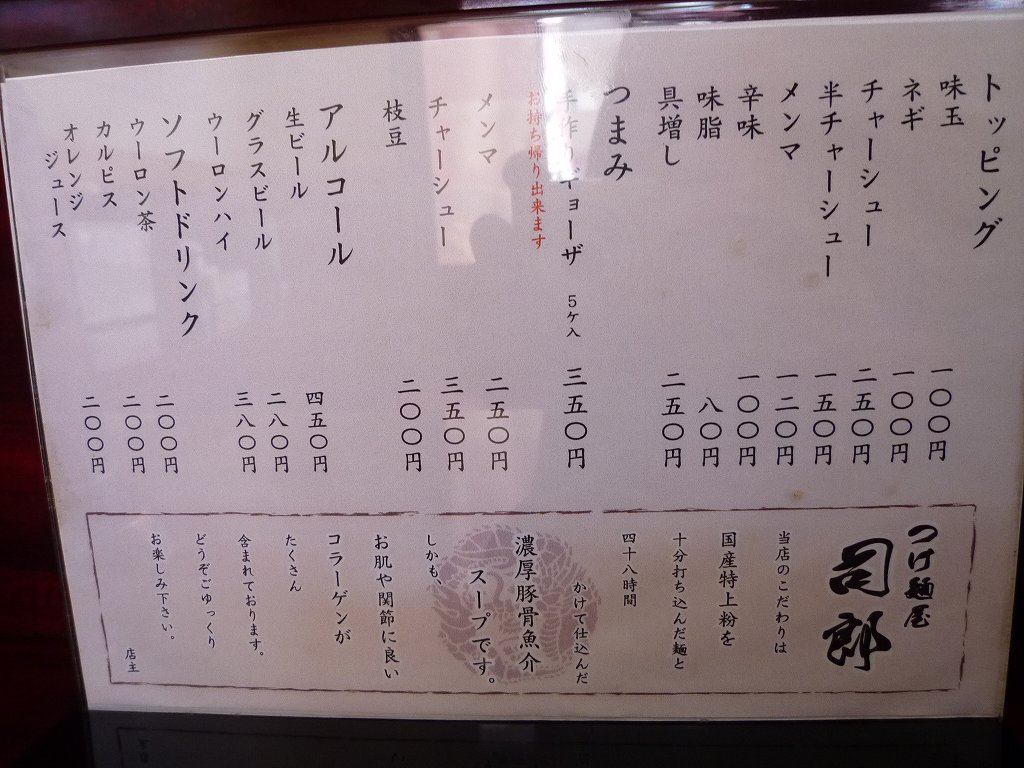 トッピング
味玉 一〇〇円
ネギ 一〇〇円
チャーシュー 二五〇円
半チャーシュー 一五〇円
メンマ 一二〇円
辛味 一〇〇円
味脂 八〇円
具増し 二五〇円
つまみ
手作りギョーザ 5ケ入 三五〇円
お持ち帰り出来ます
メンマ 二五〇円
チャーシュー 三五〇円
枝豆 二〇〇円
アルコール
生ビール 四五〇円
グラスビール 二八〇円
ウーロンハイ 三八〇円
ソフトドリンク
ウーロン茶 二〇〇円
カルピス 二〇〇円
オレンジ
ジュース 二〇〇円
つけ麺屋
司郎
当店のこだわりは
国産特上粉を
十分打ち込んだ麺と
四十八時間
かけて仕込んだ
濃厚豚骨魚介
スープです。
しかも、
お肌や関節に良い
コラーゲンが
たくさん
含まれております。
どうぞごゆっくり
お楽しみ下さい。
店主